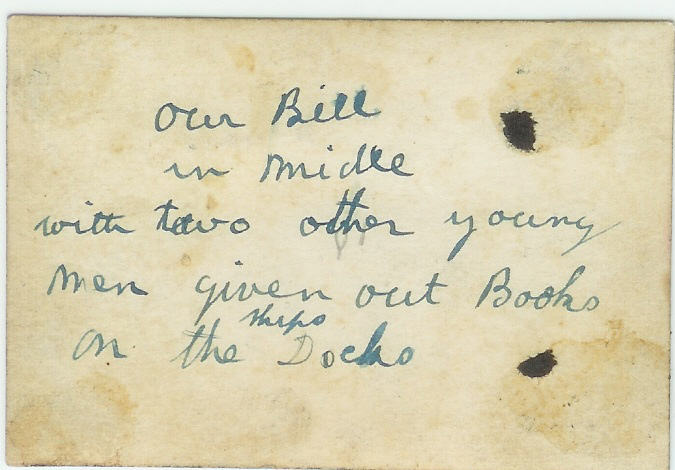 our Bill
in Midle
with two other young
Men given out Books
ships
on the Docks